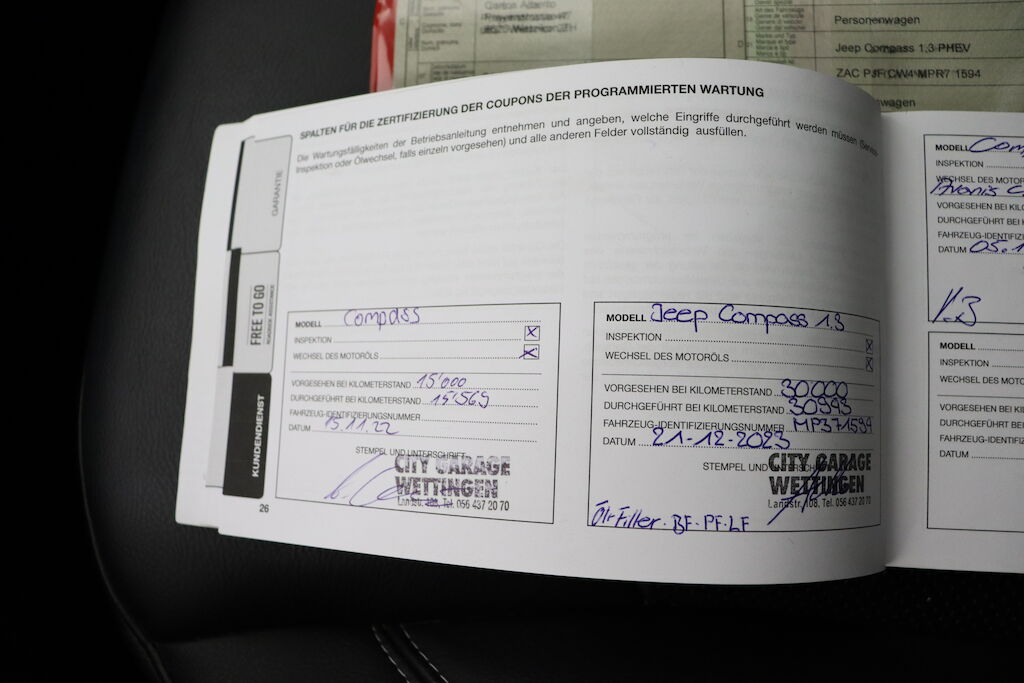 Personenwagen
Jeep Compass 1.3 PHEV
ZAC PJFCW4 MPR7 1594
wagen
SPALTEN FÜR DIE ZERTIFIZIERUNG DER COUPONS DER PROGRAMMIERTEN WARTUNG
Die Wartungsfälligkeiten der Betriebsanleitung entnehmen und angeben, welche Eingriffe durchgeführt werden müssen (Service-
Inspektion oder Ölwechsel, falls einzeln vorgesehen) und alle anderen Felder vollständig ausfüllen.
GARANTIE
FREE TO GO
KUNDENDIENST
26
MODELL Compass
INSPEKTION X
WECHSEL DES MOTORÖLS X
VORGESEHEN BEI KILOMETERSTAND 15'000
DURCHGEFÜHRT BEI KILOMETERSTAND 15'569
FAHRZEUG-IDENTIFIZIERUNGSNUMMER
DATUM 15.11.22
STEMPEL UND UNTERSCHRIFT
CITY GARAGE
WETTINGEN
Landstr. 108, Tel. 056 437 20 70
MODELL Jeep Compass 1.3
INSPEKTION X
WECHSEL DES MOTORÖLS X
VORGESEHEN BEI KILOMETERSTAND 30000
DURCHGEFÜHRT BEI KILOMETERSTAND 30993
FAHRZEUG-IDENTIFIZIERUNGSNUMMER MP371594
DATUM 21-12-2023
STEMPEL UND UNTERSCHRIFT
CITY GARAGE
WETTINGEN
Landstr. 108, Tel. 056 437 20 70
BF-PF-LF
MODELL Com
INSPEKTION
WECHSEL DES MOTOR
VORGESEHEN BEI KILO
DURCHGEFÜHRT BEI K
FAHRZEUG-IDENTIFI
DATUM 05.1
MODELL
INSPEKTION
WECHSEL DES MOTO
VORGESEHEN BEI KI
DURCHGEFÜHRT BEI
FAHRZEUG-IDENTIF
DATUM